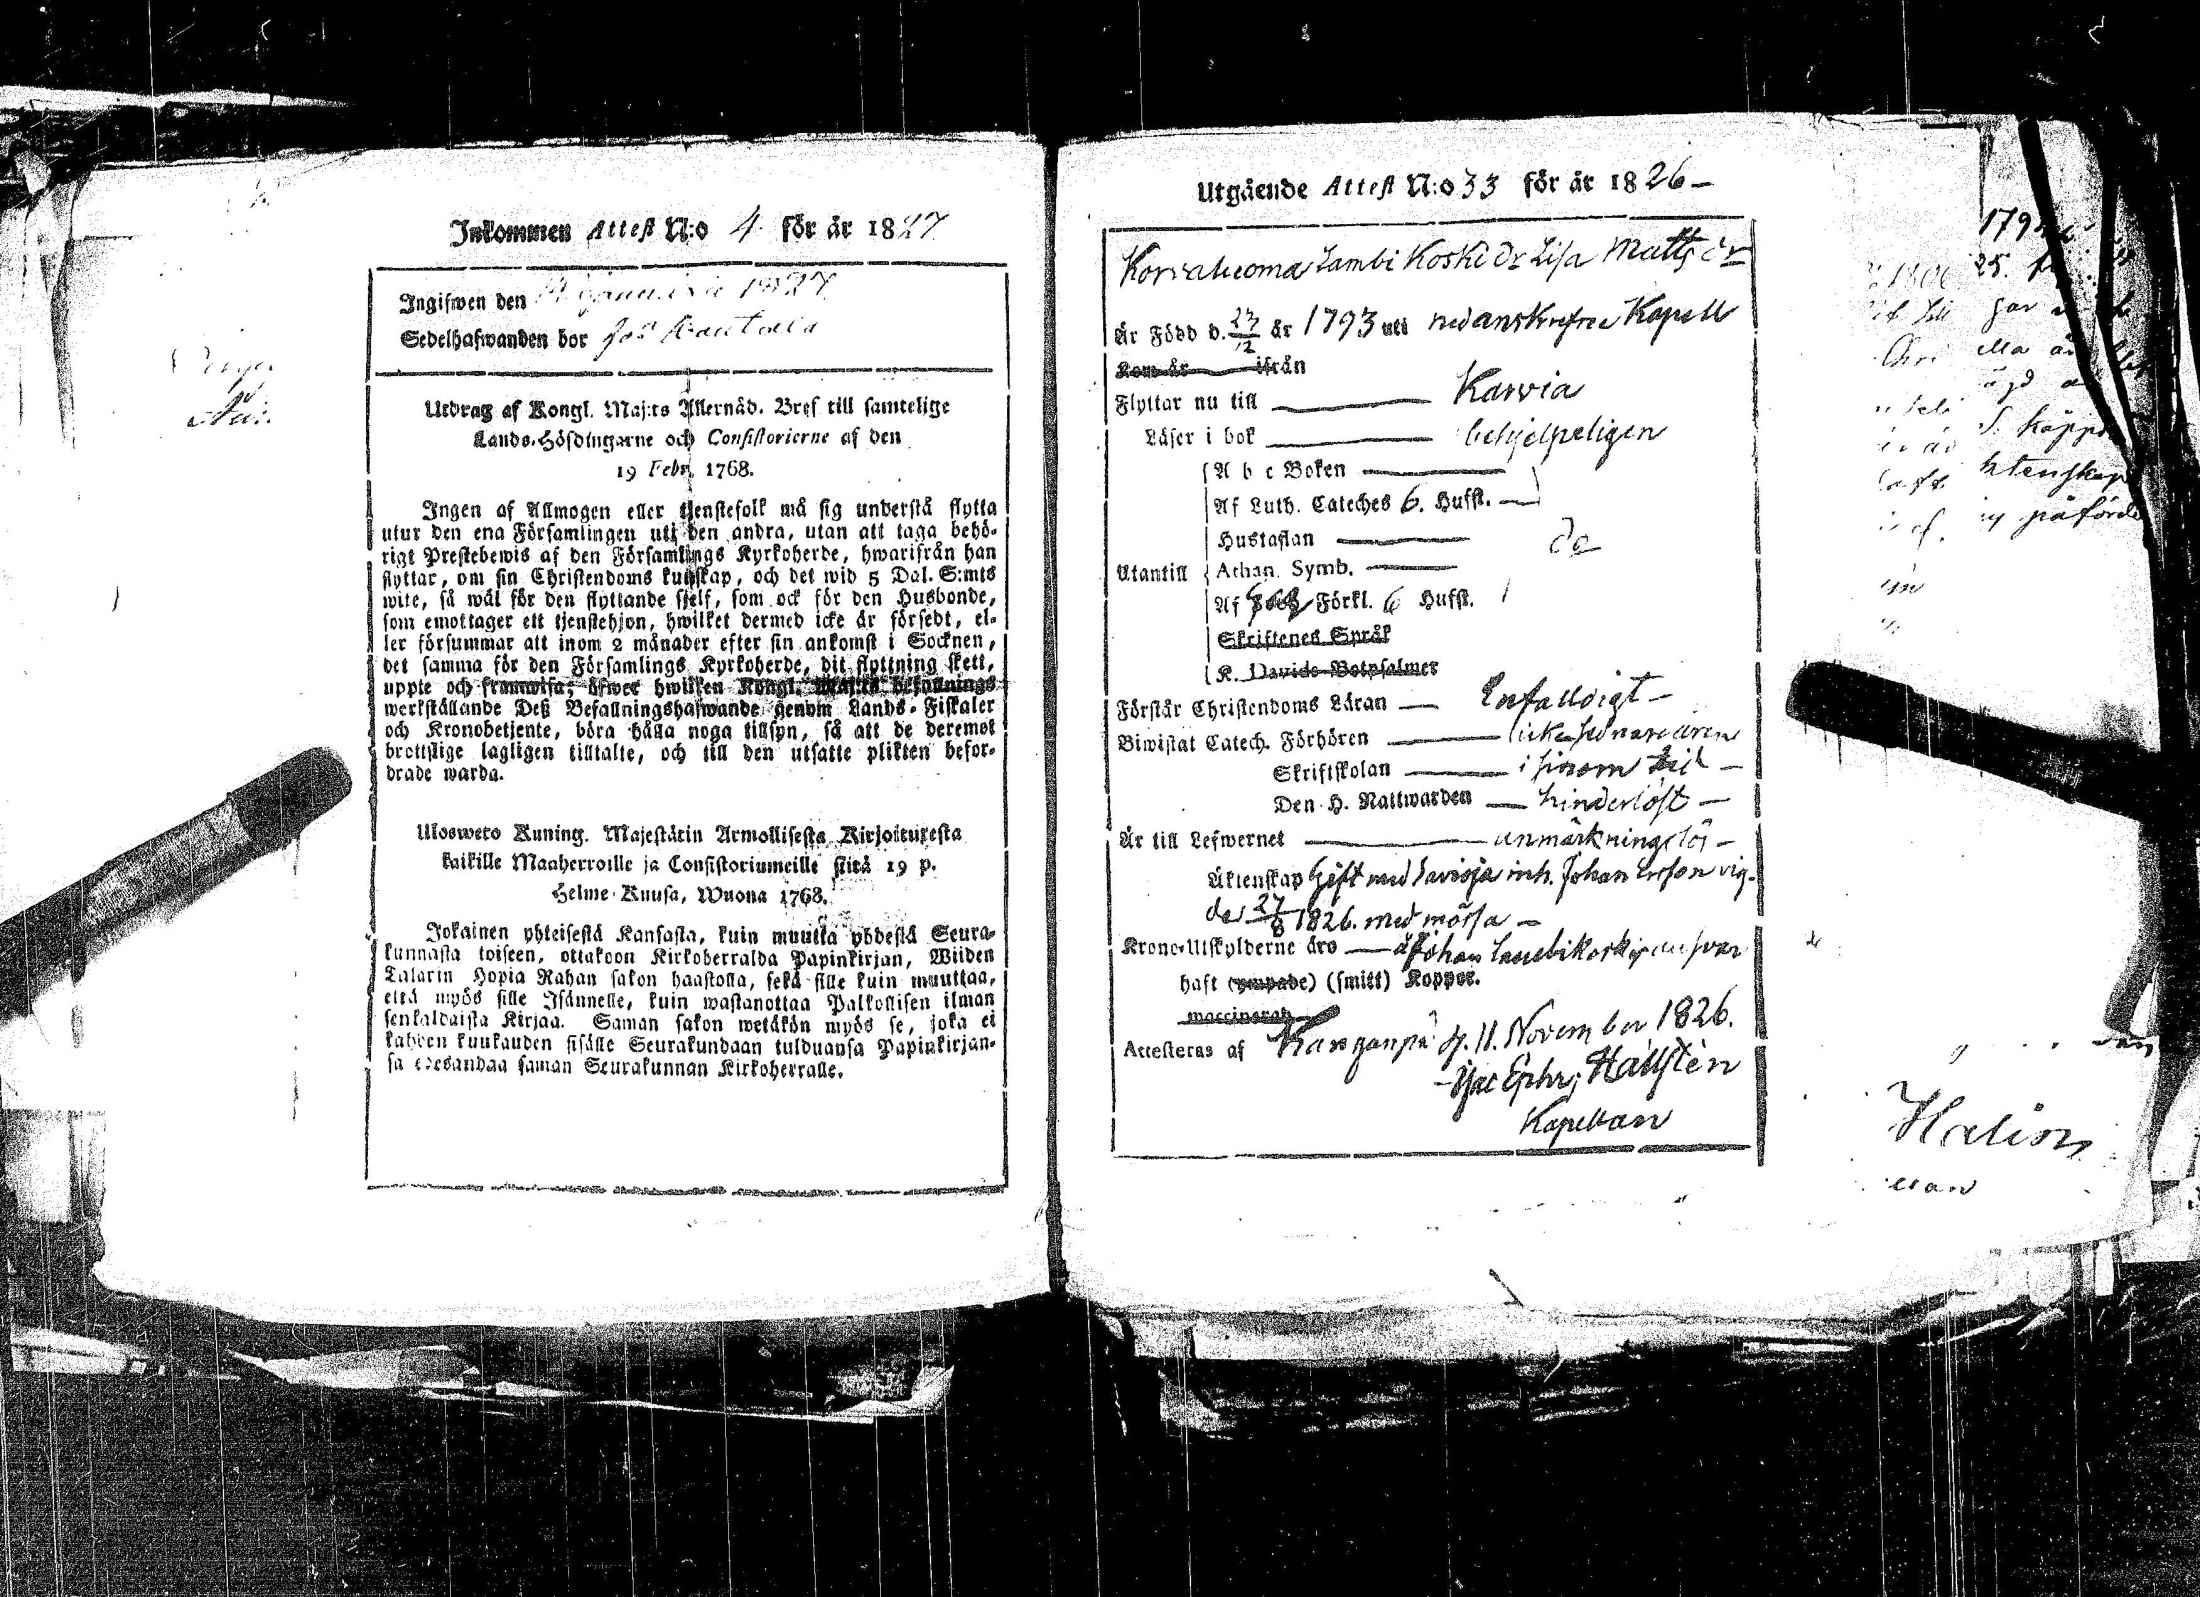 Inkommen Attest N:o 4. för år 1827
Ingifwen den 1827
Sedelhafwanden bor
Utdrag af Kongl. Maj:ts Allernåd. Bref till samtelige
Lands-Höfdingarne och Consistorierne af den
19 Febr. 1768.
Ingen af Allmogen eller tjenstefolk må sig understå flytta
utur den ena Församlingen uti den andra, utan att taga behö-
rigt Prestebewis af den Församlings Kyrkoherde, hwarifrån han
flyttar, om sin Christendoms kunskap, och det wid 5 Dal. S:mts
wite, så wäl för den flyttande sjelf, som ock för den Husbonde,
som emottager ett tjenstehjon, hwilket dermed icke är försedt, el-
ler försummar att inom 2 månader efter sin ankomst i Socknen,
det samma för den Församlings Kyrkoherde, dit flyttning skett,
uppte och framwisa; öfwer hwilken Kongl. Maj:ts befallnings
werkställande Deß Befallningshafwande genom Lands-Fiskaler
och Kronobetjente, böra hålla noga tillsyn, så att de deremot
brottslige lagligen tilltalte, och till den utsatte plikten befor-
drade warda.
Ulosweto Kuning. Majestätin Armollisesta Kirjoituxesta
kaikille Maaherroille ja Consistoriumeille siitä 19 p.
Helme-Kuusa, Wuona 1768.
Jokainen yhteisestä Kansasta, kuin muutta yhdestä Seura-
kunnasta toiseen, ottakoon Kirkoherralda Papinkirjan, Wiiden
Talarin Hopia Rahan sakon haastolla, sekä sille kuin muuttaa,
että myös sille Isännelle, kuin wastanottaa Palkollisen ilman
senkaldaista Kirjaa. Saman sakon wetäkön myös se, joka ei
kahden kuukauden sisälle Seurakundaan tulduansa Papinkirjan-
sa edesandaa saman Seurakunnan Kirkoherralle.
Utgående Attest N:o 33 för år 1826 –
Korvaluoma Lambi Koski Dr Lisa Matts dr
Är Född d. 27/12 år 1793 uti nedanskrefne Kapell
Kom år ifrån
Flyttar nu till Karvia
Läser i bok behjelpeligen
A b c Boken
Af Luth. Cateches 6. Hufst.
Hustaflan
do
Utantill Athan. Symb.
Af Förkl. 6 Hufst.
Skriftenes Språk
K. Davids Botpsalmer
Förstår Christendoms Läran Enfalldigt –
Biwistat Catech. Förhören
Skriftskolan i sinom tid –
Den H. Nattwarden hinderlöst –
Är till Lefwernet anmärkningslös –
Äktenskap Gift med inh. Johan Ersson vig.
d. 27/8 1826. med mössa –
Krono-Utskylderne äro Johan
haft (ympade) (smitt) Koppor.
waccinerad
Attesteras af Kanganpä d. 11. November 1826.
Ephr; Hällstén
Kapellan